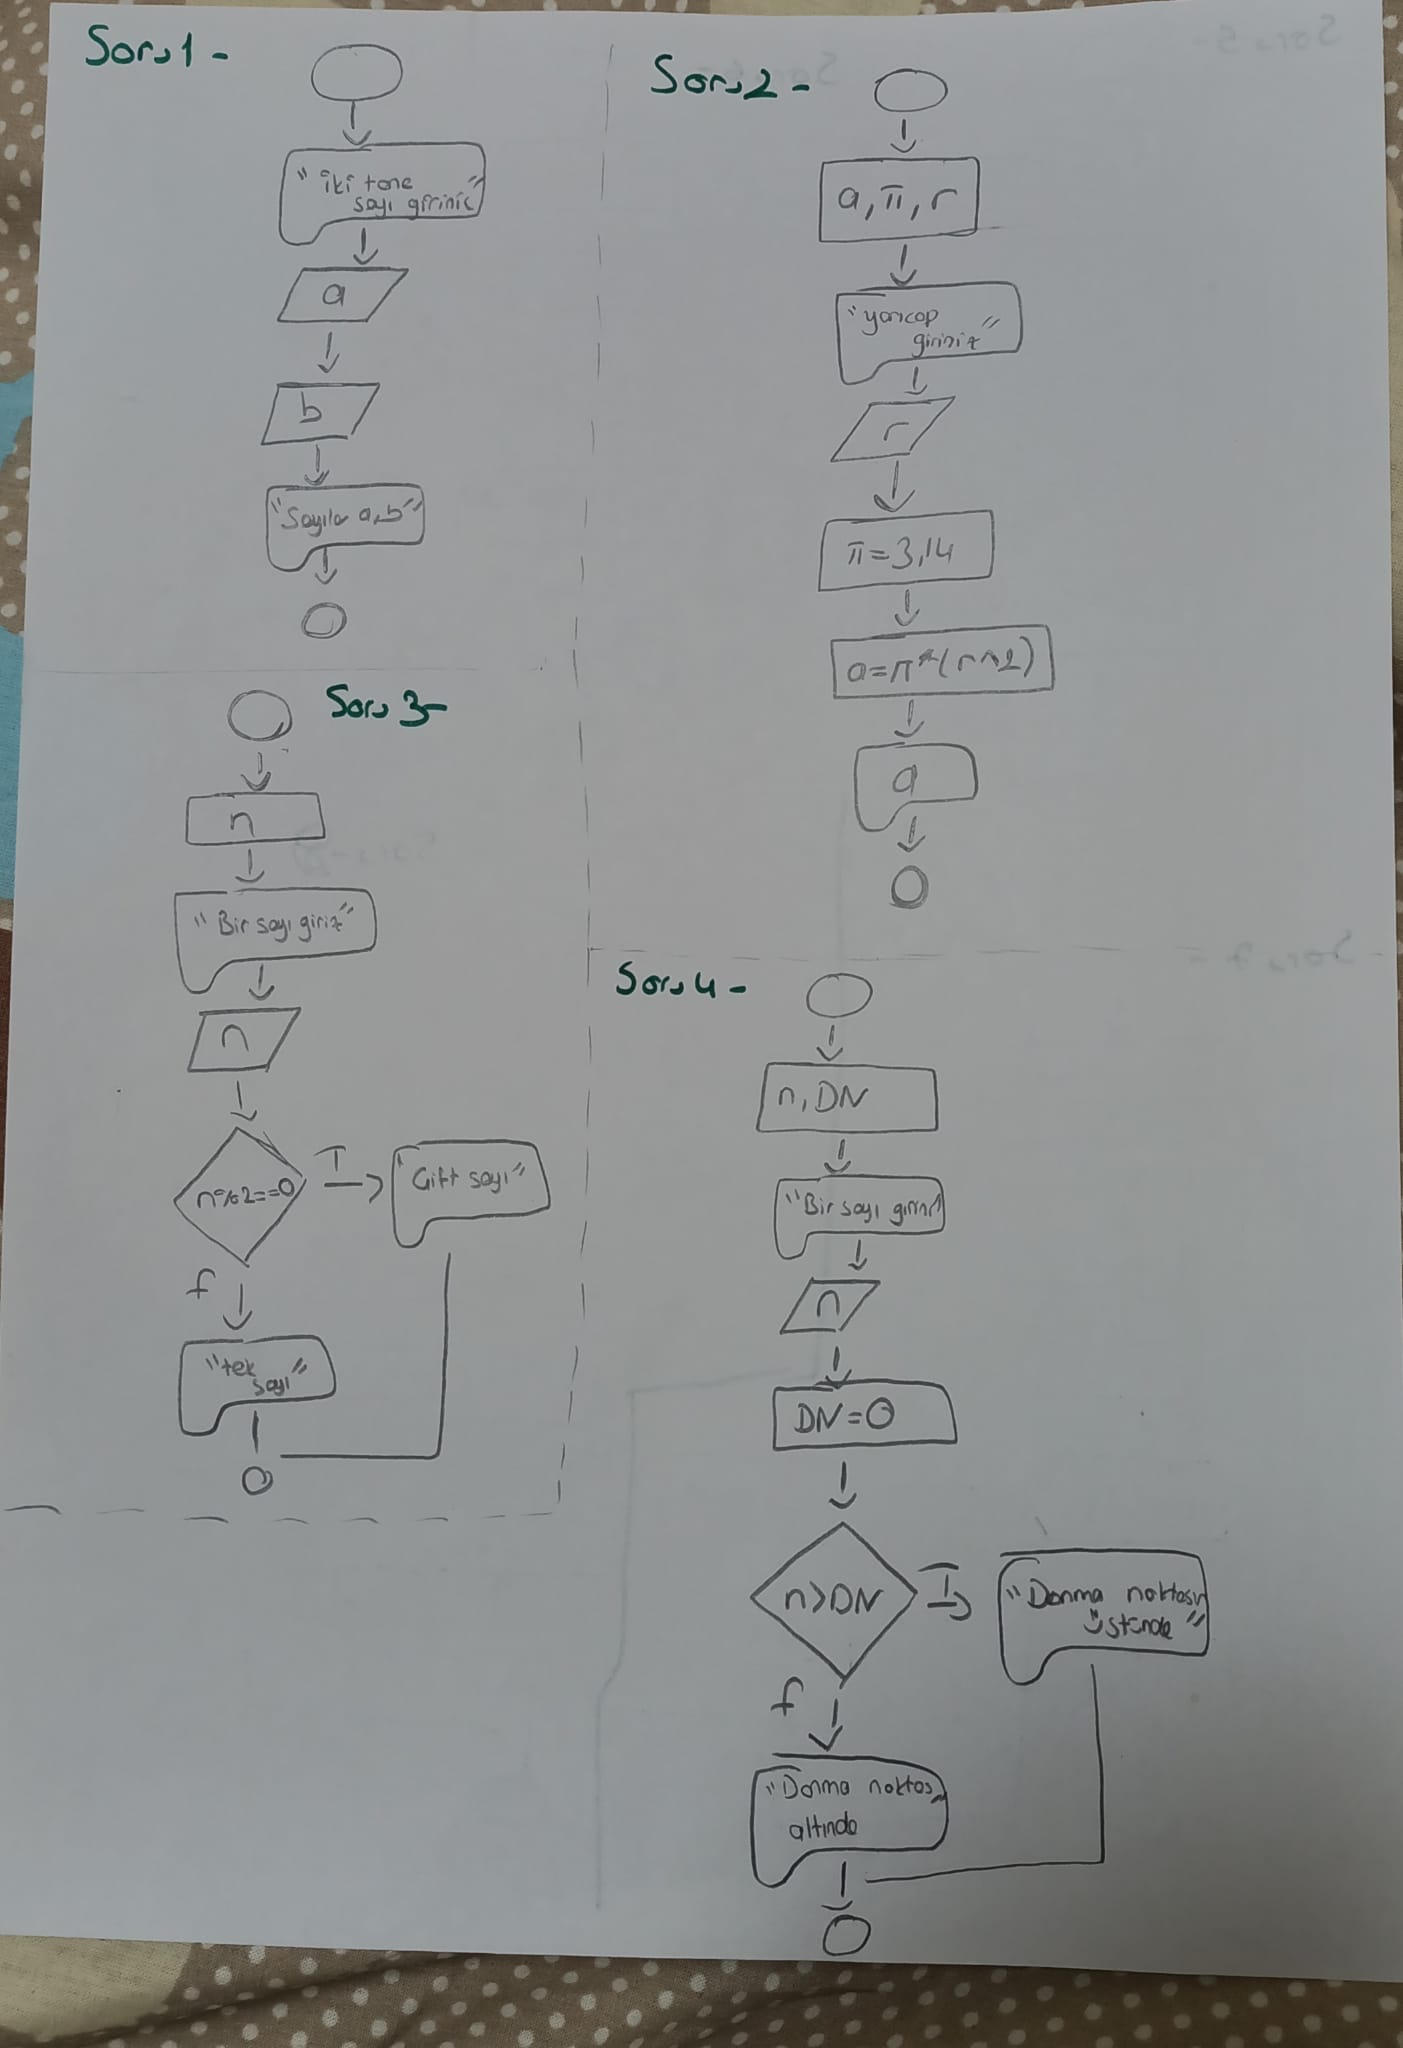 Soru 1 -
"iki tane
sayı giriniz"
a
b
"Sayılar a,b"
Soru 2 -
a, π, r
"yarıçap
giriniz"
r
π=3,14
a=π*(r^2)
a
Soru 3-
n
"Bir sayı giriz"
n
n%2==0
T
"Çift sayı"
f
"tek
sayı"
Soru 4 -
n, DN
"Bir sayı giriniz"
n
DN=0
n>DN
T
"Donma noktası
üstünde"
f
"Donma noktası"
altında